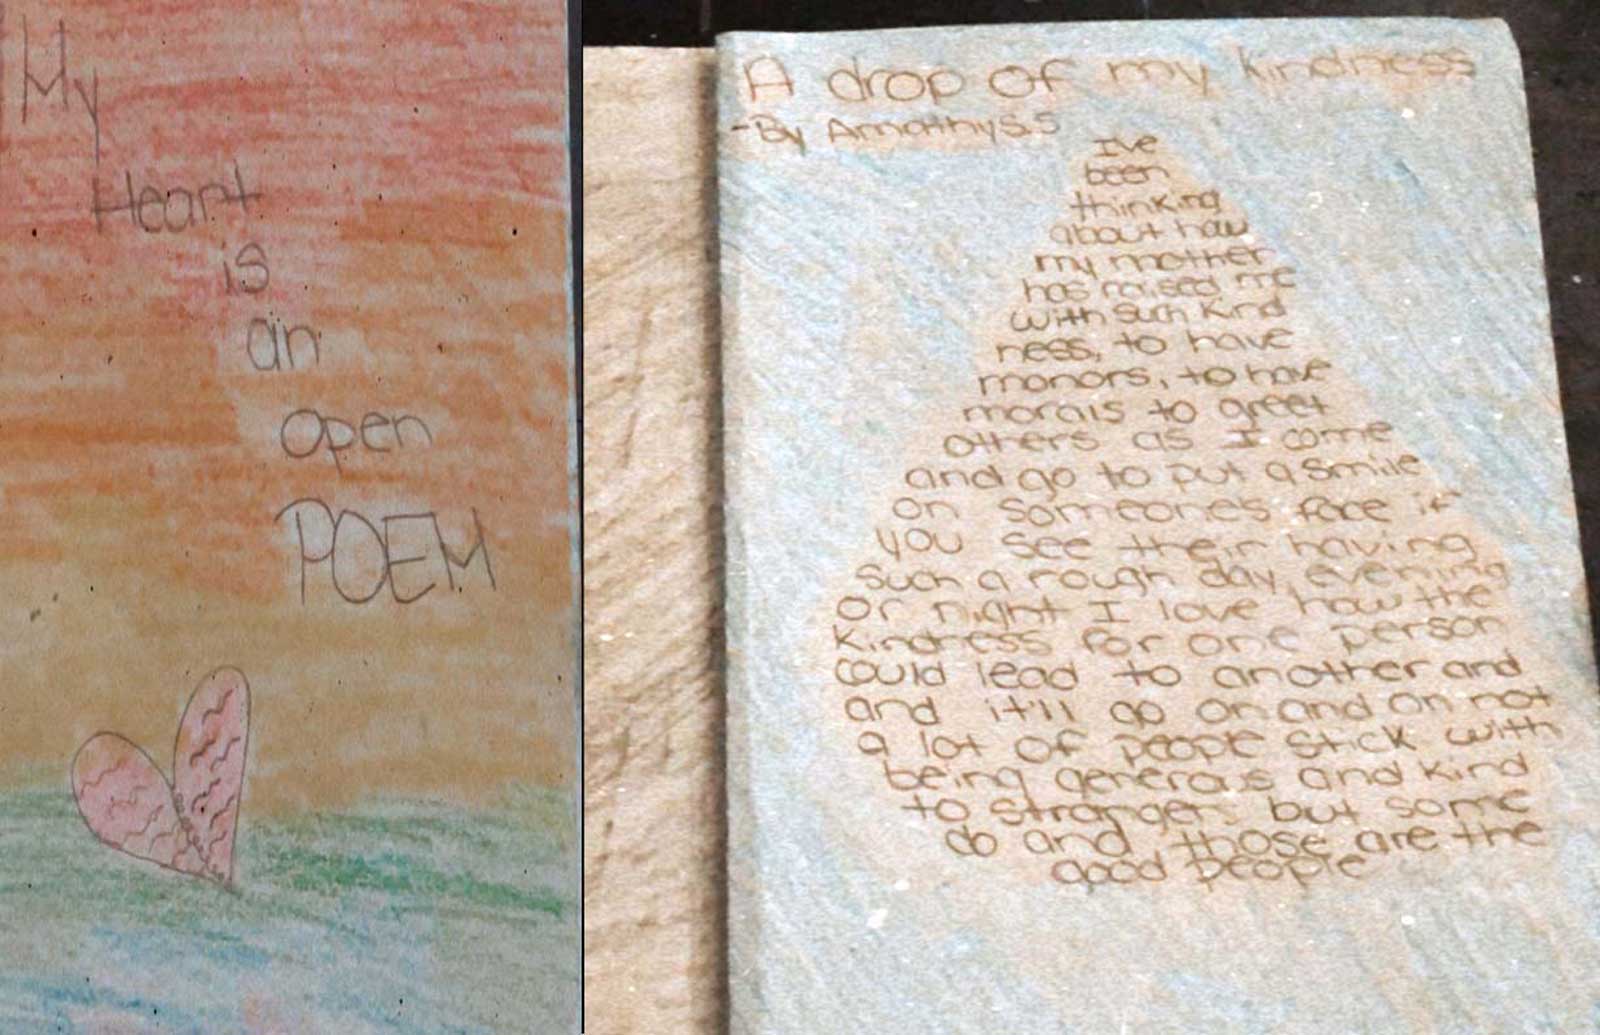 My
Heart
is
an
open
POEM
A drop of my kindness
-By Amathys.S
I've
been
thinking
about how
my mother
has raised me
with such kind
ness, to have
monors, to have
morals to greet
others as I come
and go to put a smile
on someones face if
you see their having
such a rough day, evening
or night I love how the
kindness for one person
could lead to another and
and it'll go on and on not
a lot of people stick with
being generous and kind
to stranger but some
do and those are the
good people